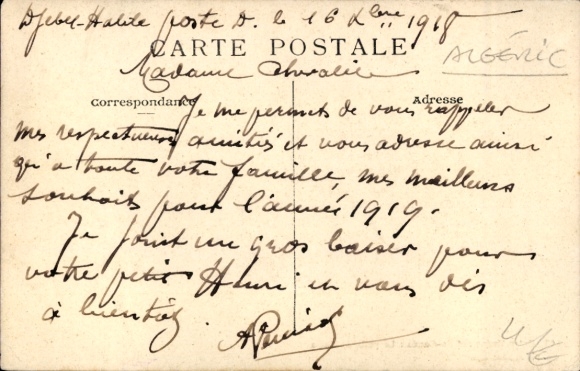 Djebel-Halile poste D. le 16 Xbre 1918
CARTE POSTALE
ALGÉRIE
Madame Chevalier
Correspondance
Adresse
Je me permets de vous rappeler
mes respectueuses amitiés et vous adresse ainsi
qu'a toute votre famille, mes meilleurs
souhaits pour l'année 1919.
Je joint un gros baiser pour
votre petit Henri et vous dis
à bientôt